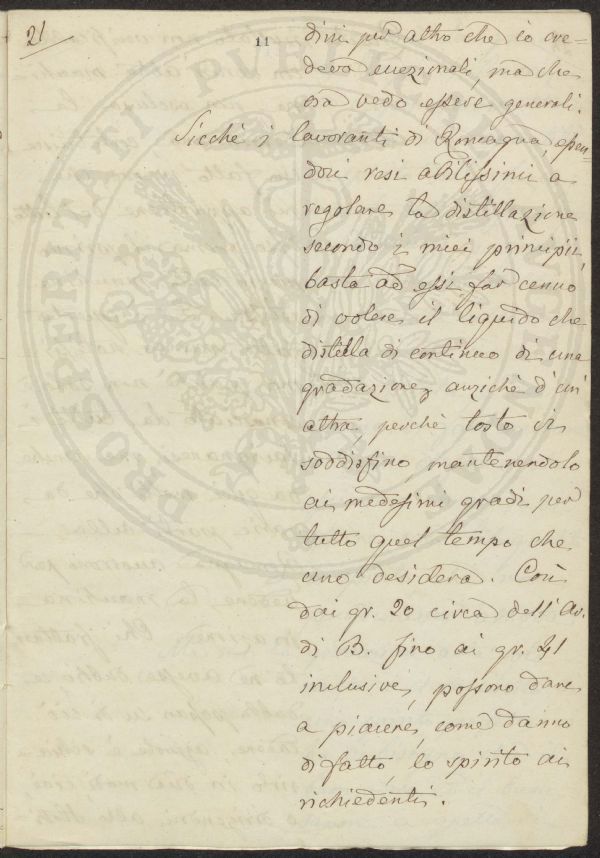 21
11
dini per altro che io cre=
devo eccezionali, ma che
ora vedo essere generali.
Sicchè i lavoranti di Romagna, essen=
dosi resi abilissimi a
regolare la distillazione
secondo i miei principii,
basta ad essi far cenno
di volere il liquido che
distilla di continuo di una
gradazione, anzichè d'un'
altra, perchè tosto vi
soddisfino, mantenendolo
ai medesimi gradi per
tutto quel tempo che
uno desidera. Così
dai gr. 20 circa dell'Ar.
di B. fino ai gr. 41
inclusive, possono dare
a piacere, come danno
di fatto, lo spirito ai
richiedenti.